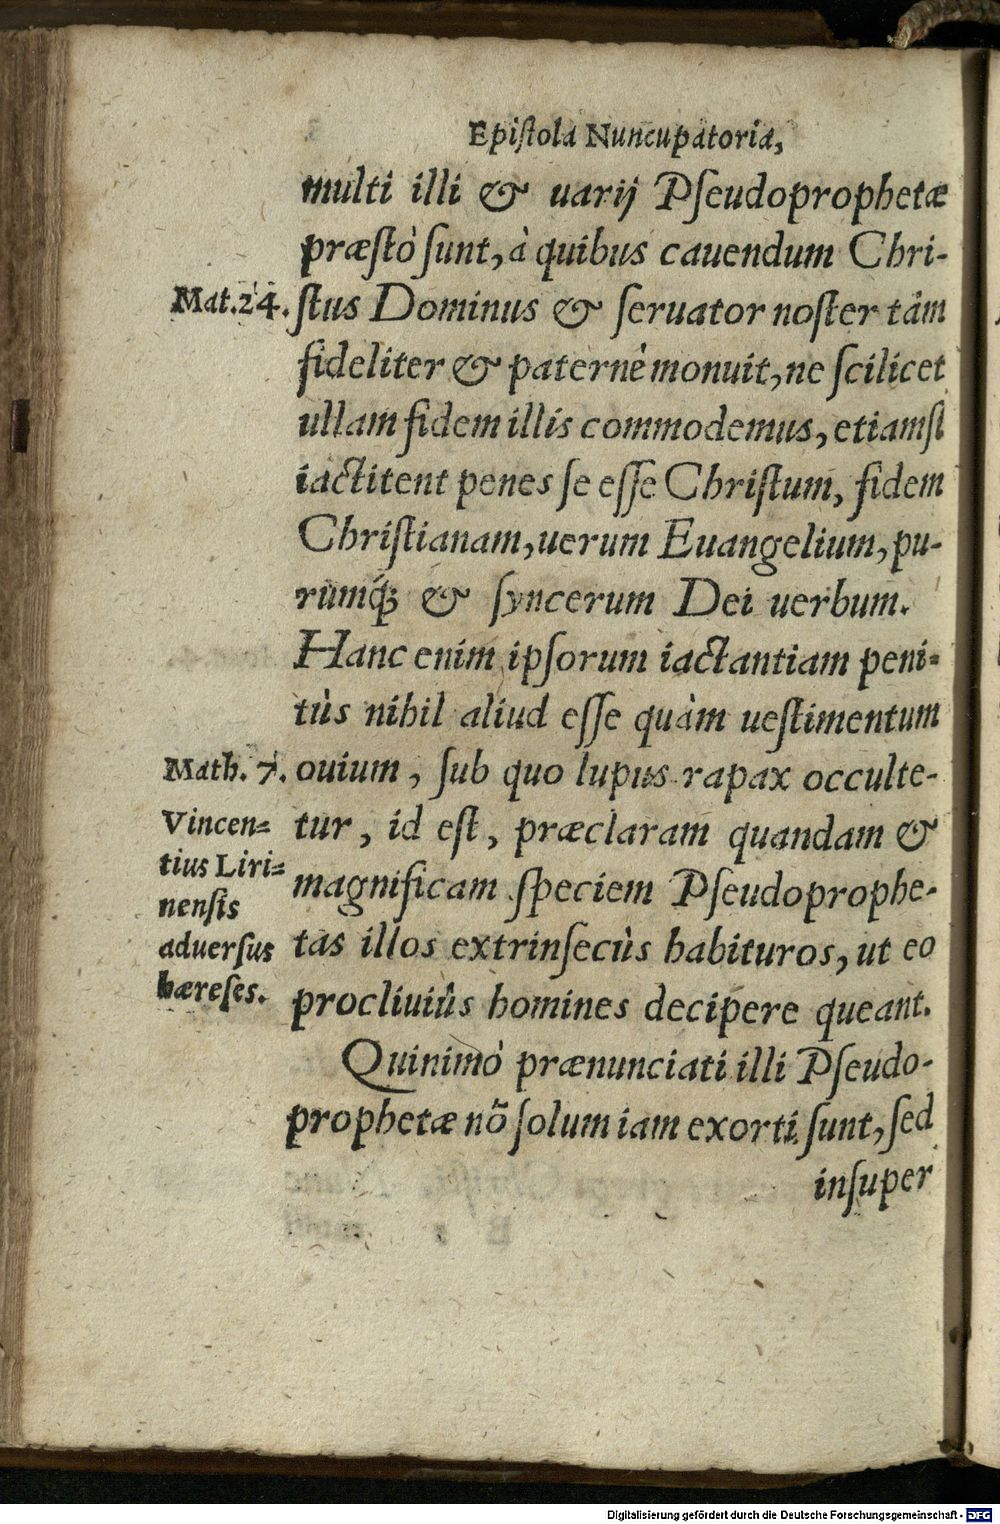 Epistola Nuncupatoria,
multi illi & uarij Pseudoprophetæ
præstò sunt, à quibus cauendum Chri-
Mat.24.
stus Dominus & seruator noster tâm
fideliter & paternè monuit, ne scilicet
ullam fidem illis commodemus, etiamsi
iactitent penes se esse Christum, fidem
Christianam, uerum Euangelium, pu-
rumq́; & syncerum Dei uerbum.
Hanc enim ipsorum iactantiam peni-
tùs nihil aliud esse quàm uestimentum
Math. 7.
ouium, sub quo lupus rapax occulte-
Vincen-
tius Liri-
nensis
aduersus
hæreses.
tur, id est, præclaram quandam &
magnificam speciem Pseudoprophe-
tas illos extrinsecùs habituros, ut eo
procliuiùs homines decipere queant.
Quinimò prænunciati illi Pseudo-
prophetæ nõ solum iam exorti sunt, sed
insuper
Digitalisierung gefördert durch die Deutsche Forschungsgemeinschaft - DFG